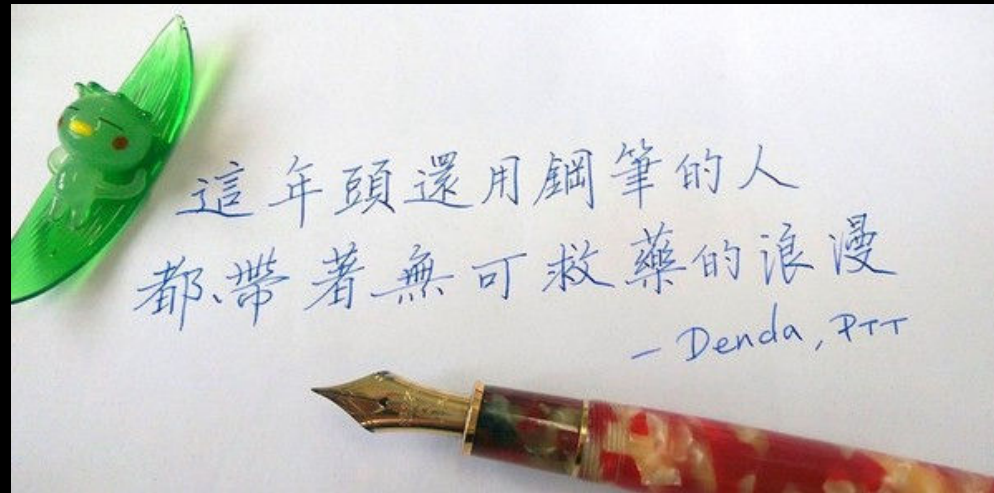 這年頭還用鋼筆的人
都帶著無可救藥的浪漫
- Denda, PTT